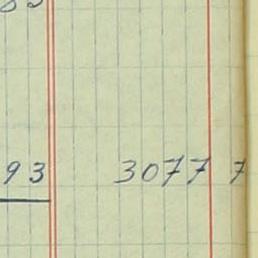 93 3077 7